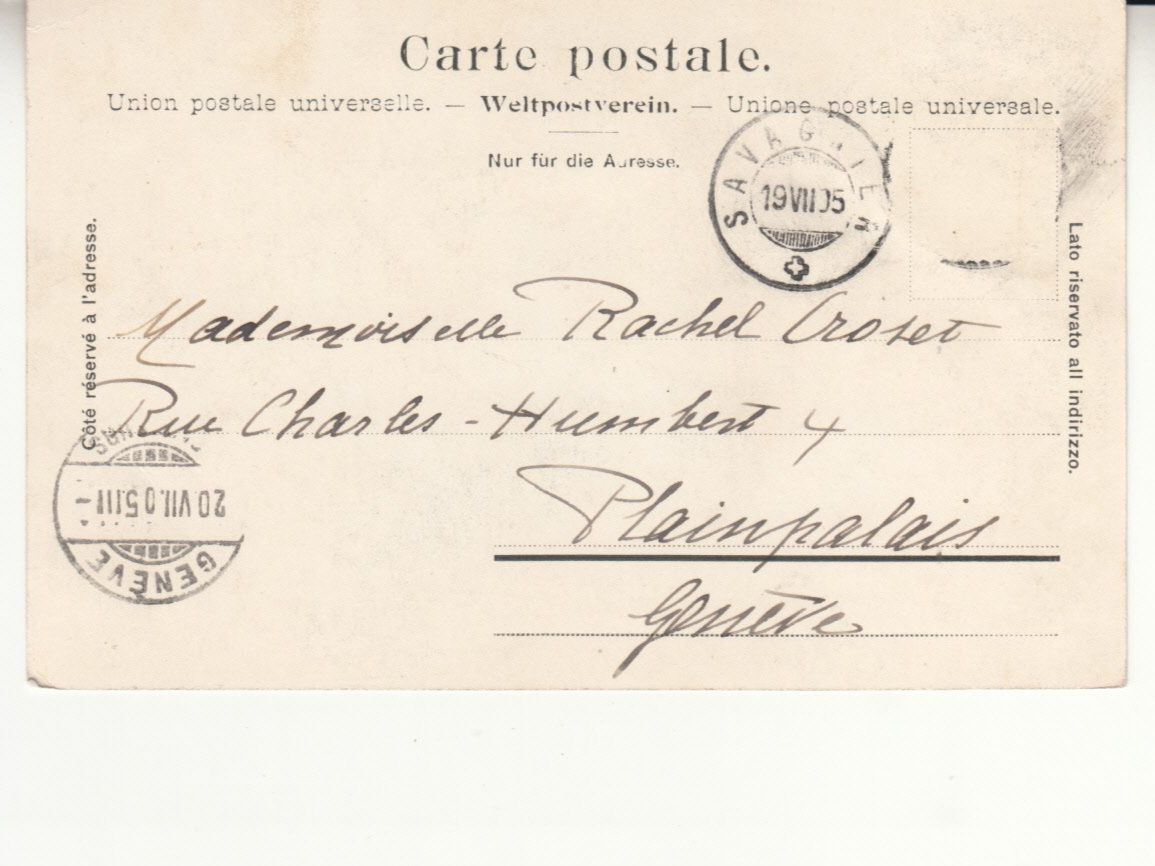 Carte postale.
Union postale universelle. — Weltpostverein. — Unione postale universale.
Nur für die Adresse.
SAVAGNIER
19 VII 05
Côté réservé à l'adresse.
Lato riservato all indirizzo.
Mademoiselle Rachel Croset
Rue Charles-Humbert 4
Plainpalais
Genève
20.VII.05.III-
GENÈVE